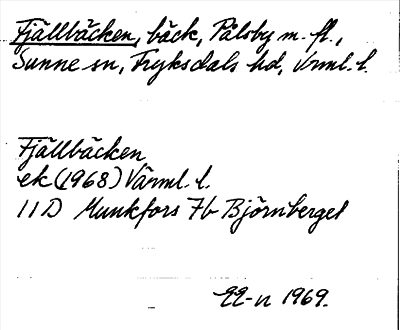 Fjällbäcken, bäck, Pålsby m. fl.,
Sunne sn, Fryksdals hd, Vrml. l.
Fjällbäcken
ek (1968) Värml. l.
11D Munkfors 7b Björnberget
1969.